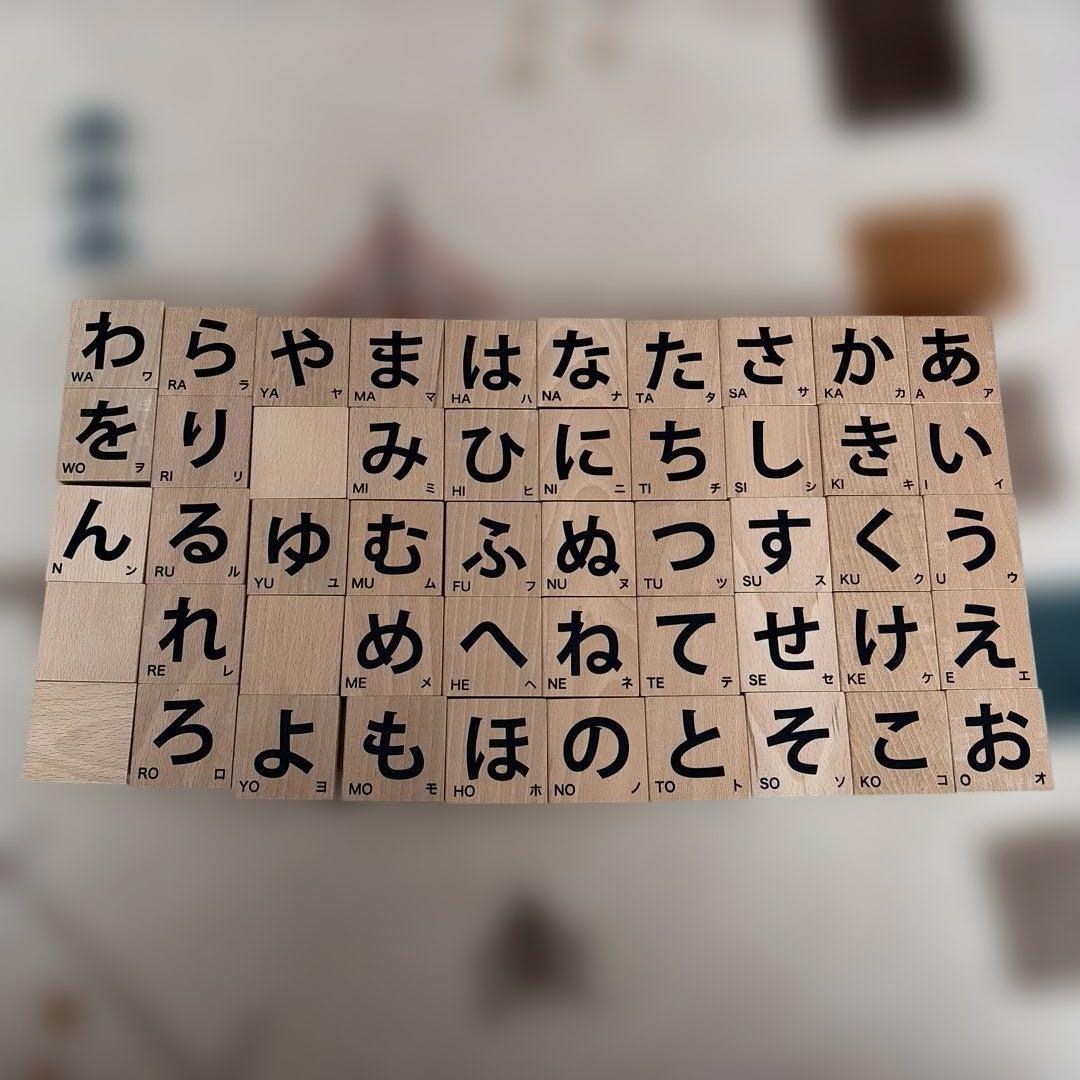 わ ら や ま は な た さ か あ
WA ワ RA ラ YA ヤ MA マ HA ハ NA ナ TA タ SA サ KA カ A ア
を り み ひ に ち し き い
WO ヲ RI リ MI ミ HI ヒ NI ニ TI チ SI シ KI キ I イ
ん る ゆ む ふ ぬ つ す く う
N ン RU ル YU ユ MU ム FU フ NU ヌ TU ツ SU ス KU ク U ウ
れ め へ ね て せ け え
RE レ ME メ HE ヘ NE ネ TE テ SE セ KE ケ E エ
ろ よ も ほ の と そ こ お
RO ロ YO ヨ MO モ HO ホ NO ノ TO ト SO ソ KO コ O オ